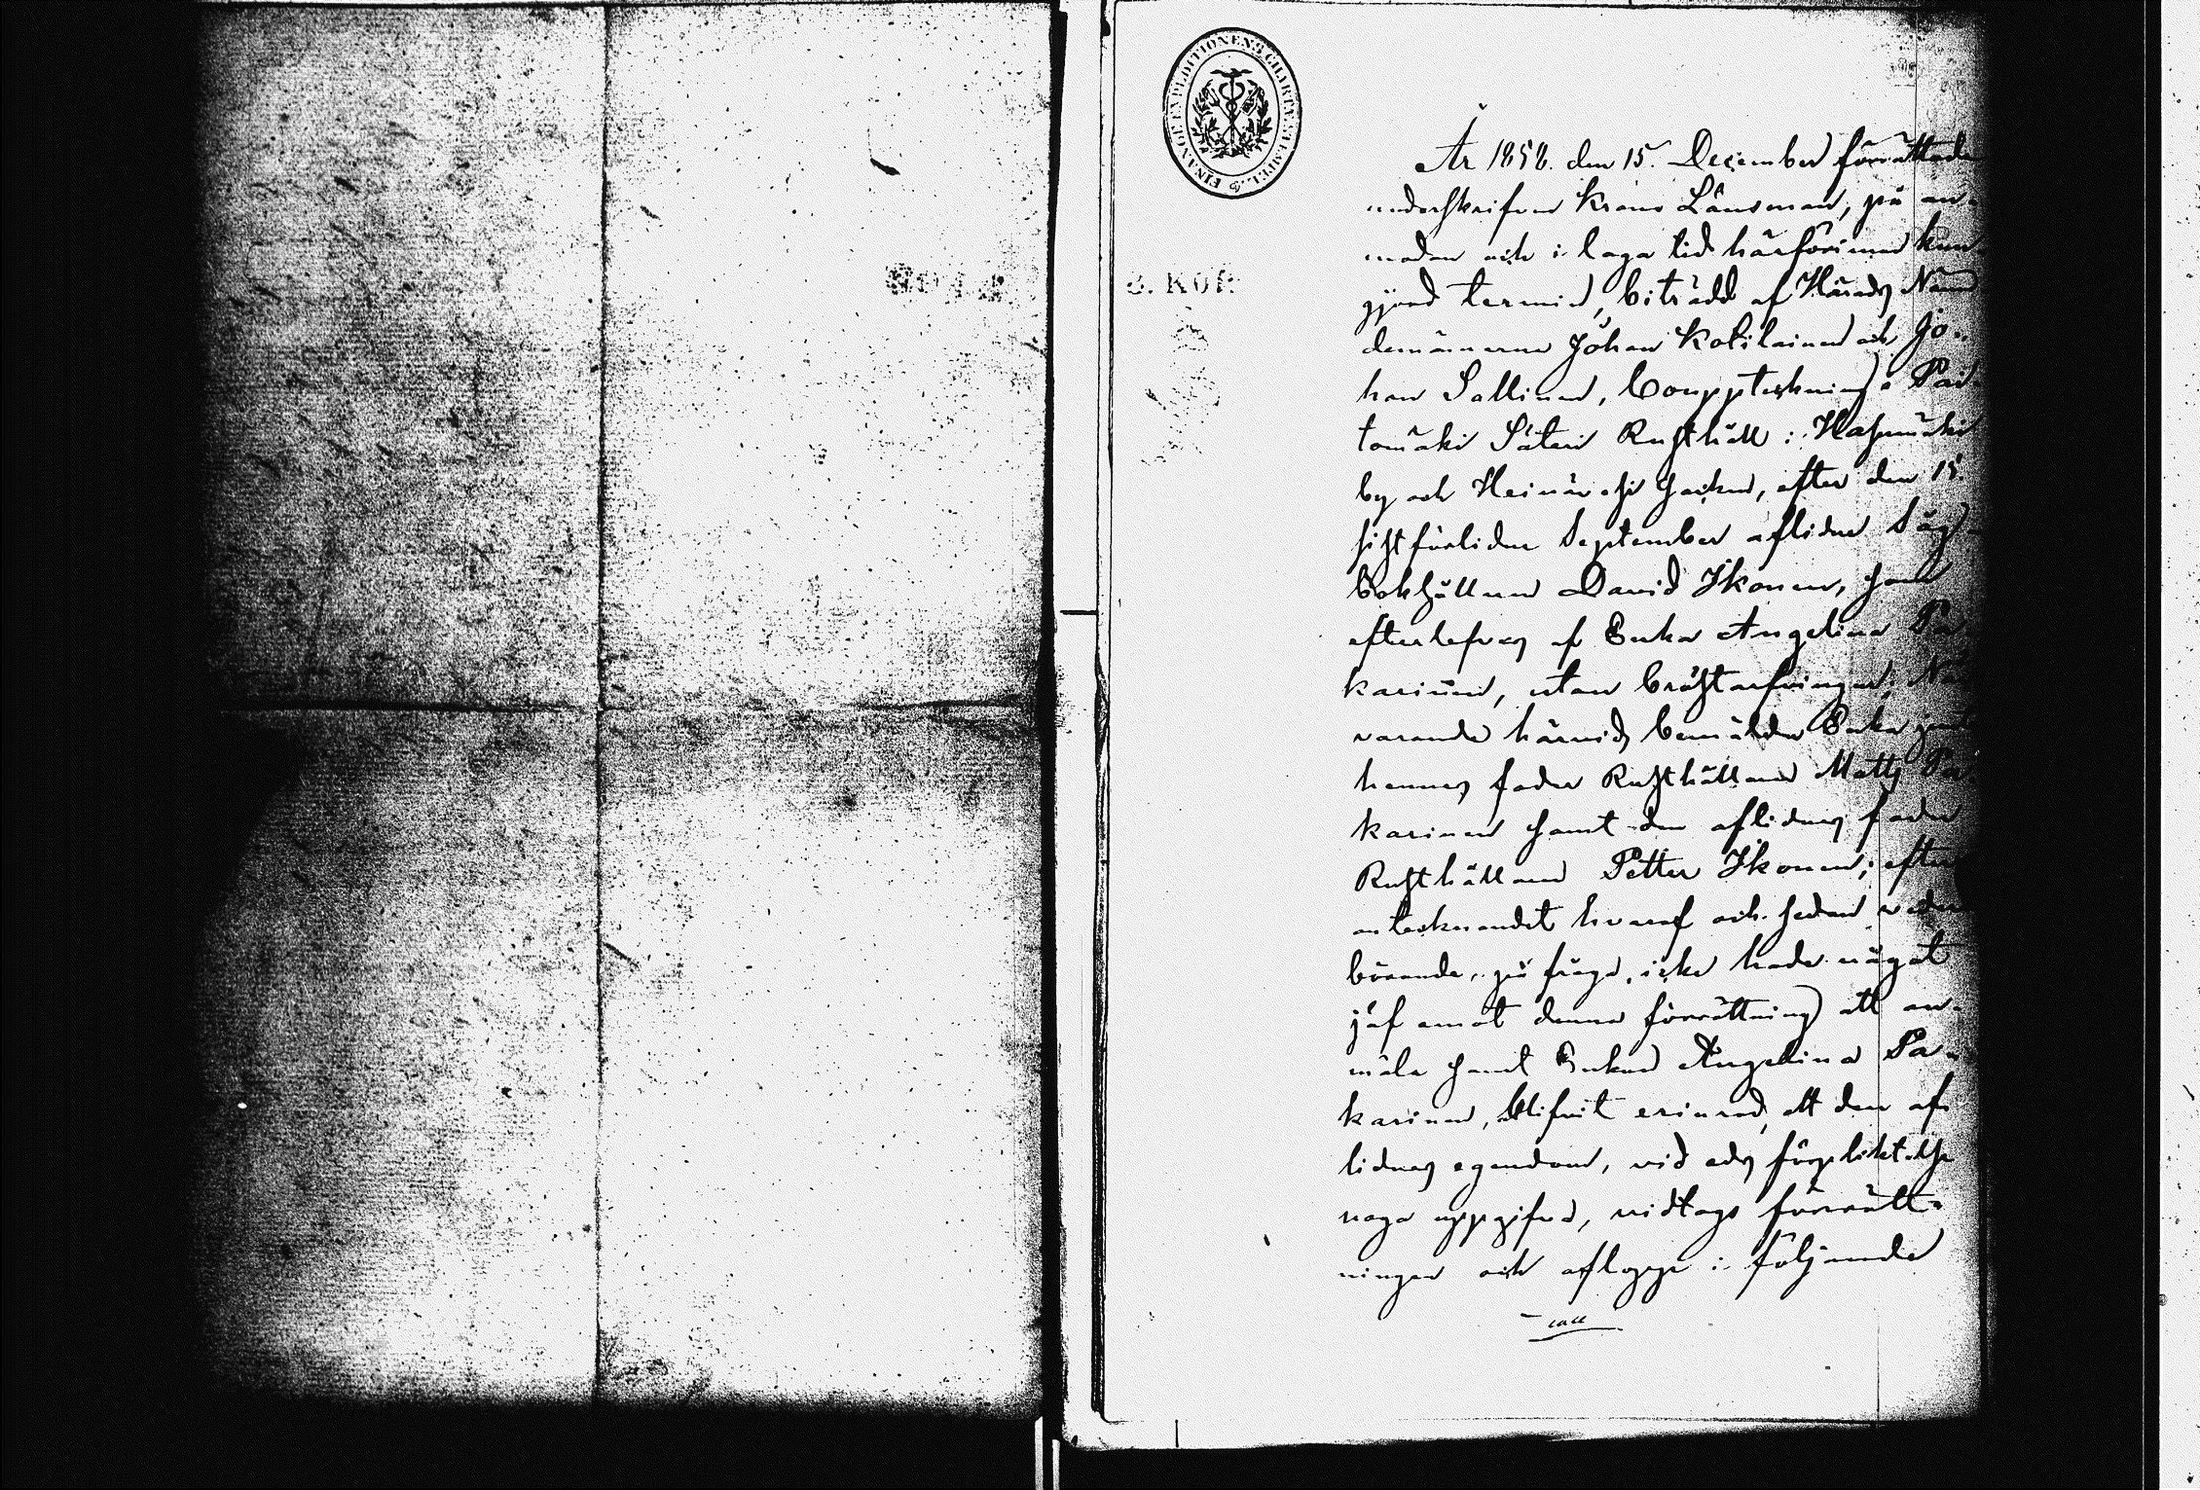 FINANCE EXPEDITIONENS CHARTÆ STEMPEL.
3. KOP.
År 1858. den 15. December förrättade
underskrifven Krono Länsman, på an-
modan och i laga tid härförinnan kun
gjord termin, biträdd af Härads Nämn
demännerne Johan Kotilainen och Jo-
han Sallinen, Bouppteckning å Pai-
tomäki Säteri Rusthåll i Hasumäki
by och Heinävesi socken, efter den 15.
sistförlidne September aflidne Såg-
Bokhållaren David Ikonen, som
efterlefves af Enka Angelina Pa-
karinen, utan bröstarfvingar; När
varande härvid, bemälda Enka jemte
hennes fader Rusthållaren Matts Pa-
karinen samt den aflidnes fader
Rusthållaren Petter Ikonen; efter
antecknandet hvaraf och sedan veder
börande, på fråga, icke hade något
jäf emot denna förrättning att an-
mäla samt Enkan Angelina Pa-
karinen, blifvit erinrad, att den af-
lidnes egendom, vid eds förplicktelse
noga uppgifva, vidtogs förrätt-
ningen och aflopp i följande